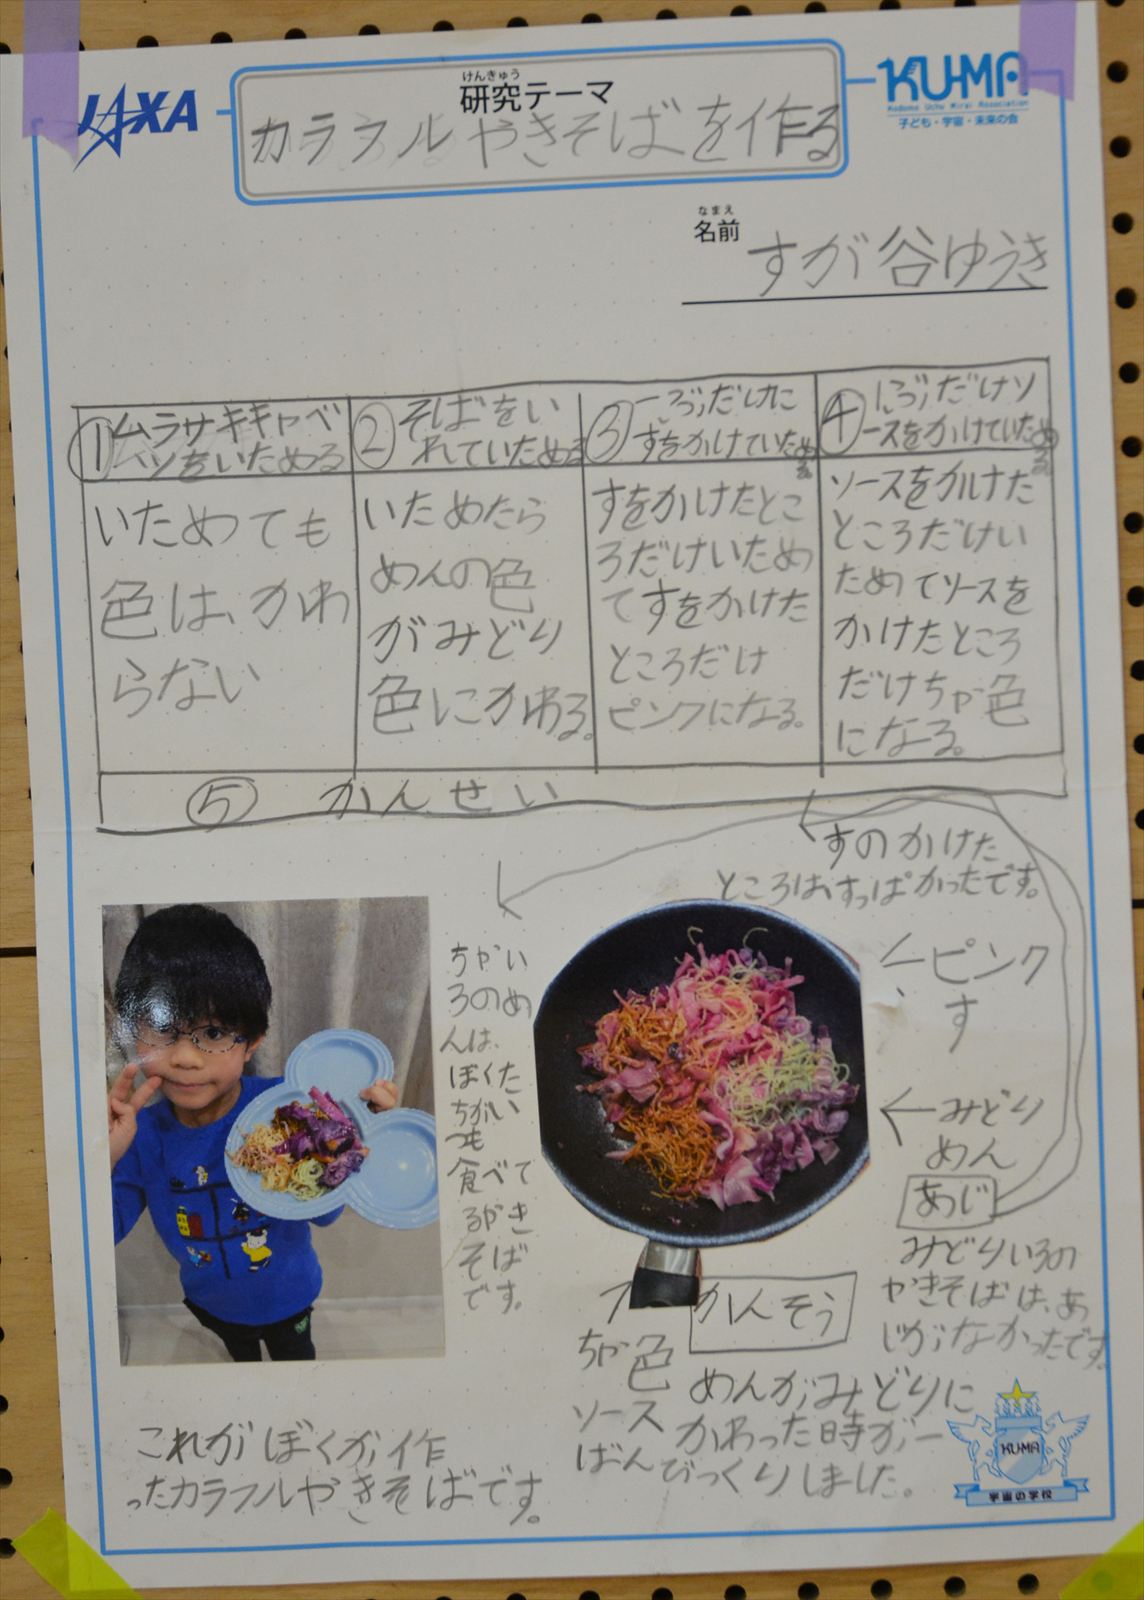 JAXA
けんきゅう
研究テーマ
カラフルやきそばを作る
KU-MA
Kodomo Uchu Mirai Association
子ども・宇宙・未来の会
なまえ
名前
すが谷ゆうき
①ムラサキキャベ
ツをいためる
いためても
色は、かわ
らない
②そばをい
れていためる
いためたら
めんの色
がみどり
色にかわる。
③一ぶだけに
すをかけていためる
すをかけたとこ
ろだけいため
てすをかけた
ところだけ
ピンクになる。
④一ぶだけソ
ースをかけていためる
ソースをかけた
ところだけい
ためてソースを
かけたところ
だけちゃ色
になる。
⑤ かんせい
すのかけた
ところは、すっぱかったです。
ちゃい
ろのめ
んは、
ぼくた
ちがい
つも
食べて
るやき
そば
です。
←ピンク
す
←みどり
めん
あじ
みどりいろの
やきそばは、あ
じがなかったです。
ちゃ色
ソース
かんそう
めんがみどりに
かわった時が一
ばんびっくりしました。
これがぼくが作
ったカラフルやきそばです。
KU-MA
宇宙の学校